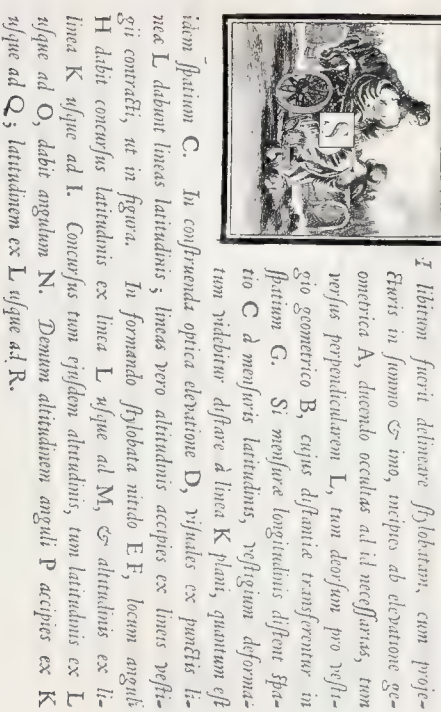 SI libitum fuerit delineare stylobatam, cum proje-
cturis in summo & imo, incipies ab elevatione ge-
ometrica A, ducendo occultas ad id necessarias, tum
versus perpendicularem L, tum deorsum pro vesti-
gio geometrico B, cujus distantiæ transferentur in
spatium G. Si mensuræ longitudinis distent spa-
tio C à mensuris latitudinis, vestigium deforma-
tum videbitur distare à linea K plani, quantum est
idem spatium C. In construenda optica elevatione D, visuales ex punctis li-
neæ L dabunt lineas latitudinis; lineas vero altitudinis accipies ex lineis vesti-
gii contracti, ut in figura. In formando stylobata nitido EF, locum anguli
H dabit concursus latitudinis ex linea L usque ad M, & altitudinis ex li-
nea K usque ad I. Concursus tum ejusdem altitudinis, tum latitudinis ex L
usque ad O, dabit angulum N. Demum altitudinem anguli P accipies ex K
usque ad Q; latitudinem ex L usque ad R.